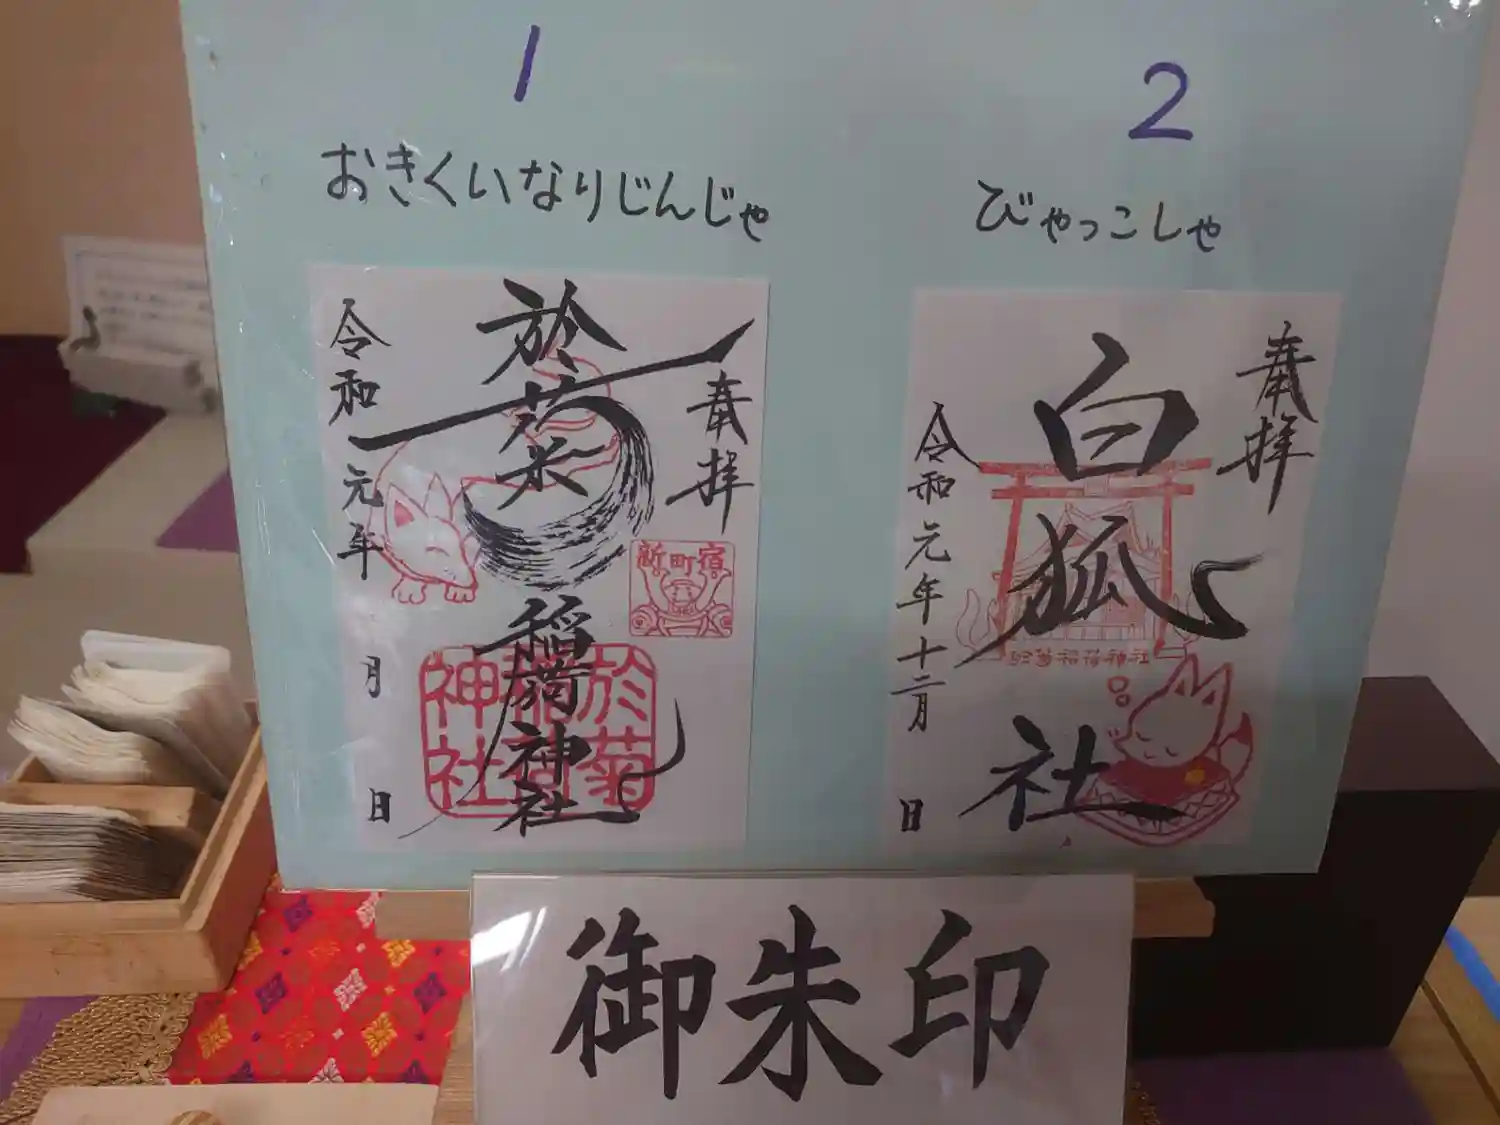 1
おきくいなりじんじゃ
奉拝
於菊稲荷神社
令和元年 月 日
新町宿
於菊
稲荷
神社
2
びゃっこしゃ
奉拝
白狐社
令和元年十二月 日
於菊稲荷神社
御朱印